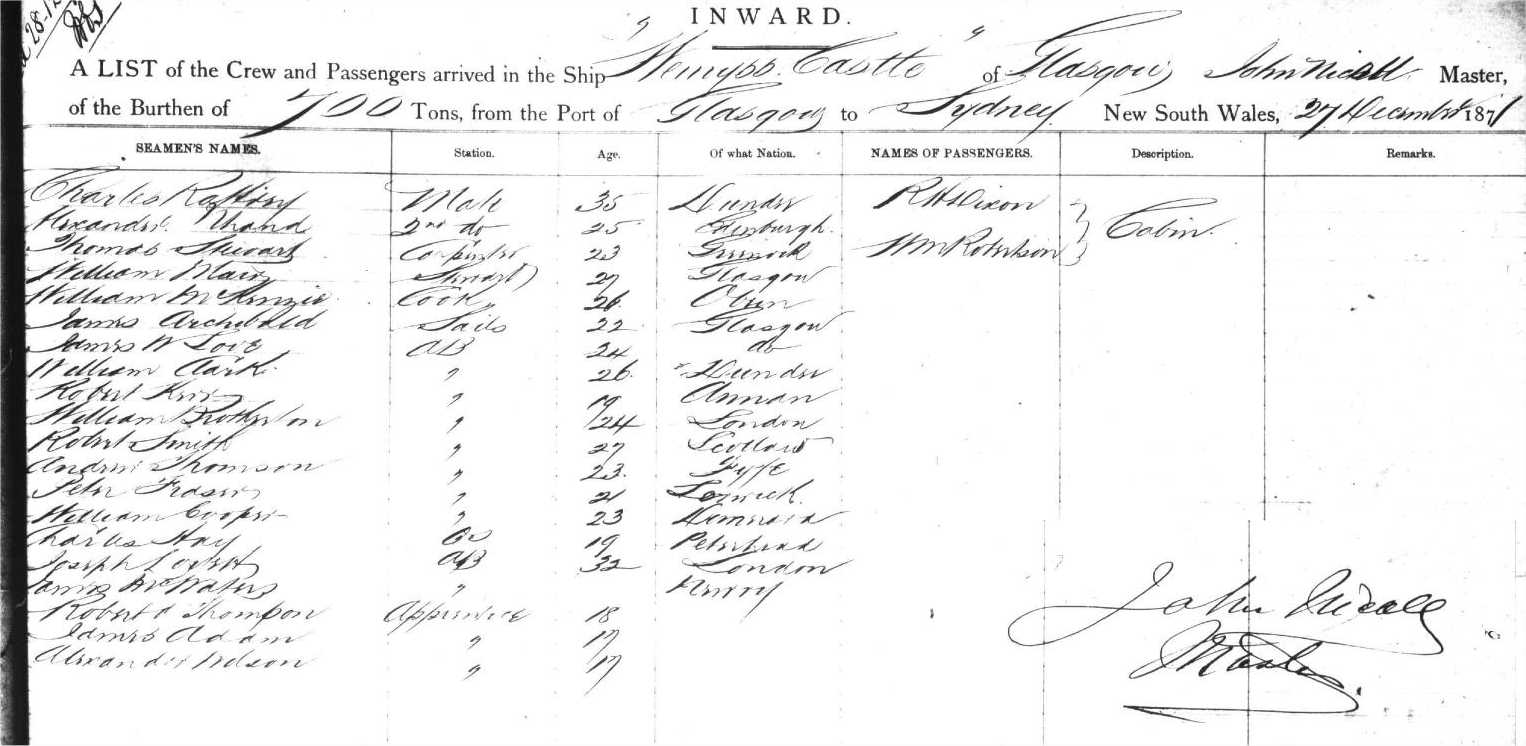 28-12
INWARD.
A LIST of the Crew and Passengers arrived in the Ship "Wemyss Castle" of Glasgow, John Nicoll Master,
of the Burthen of 700 Tons, from the Port of Glasgow to Sydney New South Wales, 27 December 1871
SEAMEN'S NAMES. Station. Age. Of what Nation. NAMES OF PASSENGERS. Description. Remarks.
Charles Mate 35 Dundee R H Dixon
Alexander 2nd do 25 Edinburgh Cabin
Thomas Stewart Carpenter 23 Greenock Wm Robertson
William Main Steward 27 Glasgow
William McKenzie Cook 26 Oban
James Archibald Sails 22 Glasgow
James W Love AB 24 do
William Clark " 26 Dundee
Robert Kerr " 19 Annan
William Brotherton " 24 London
Robert Smith " 27 Scotland
Andrew Thomson " 23 Fyfe
Peter Fraser " 21 Lerwick
William Cooper " 23
Charles Hay 19 Peterhead
Joseph AB 32 London
James McWaters "
Robert A Thompson Apprentice 18
James Adam " 17
Alexander Nelson " 17
John Nicoll
Master